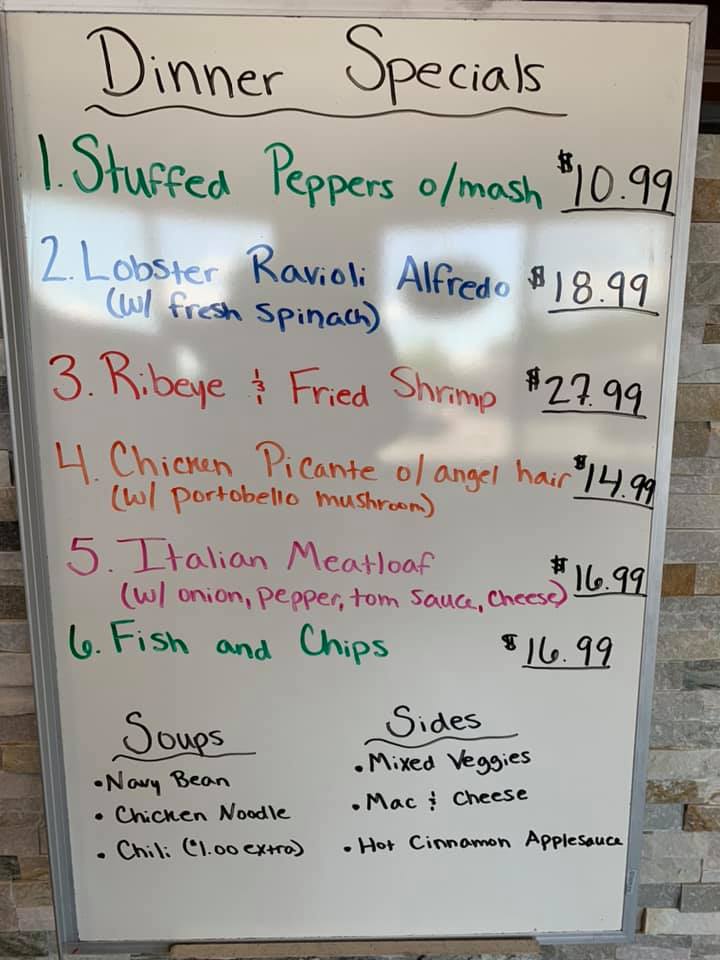 Dinner Specials
1. Stuffed Peppers o/mash $10.99
2. Lobster Ravioli Alfredo $18.99
(w/ fresh spinach)
3. Ribeye & Fried Shrimp $27.99
4. Chicken Picante o/angel hair $14.99
(w/ portobello mushroom)
5. Italian Meatloaf $16.99
(w/ onion, pepper, tom sauce, cheese)
6. Fish and Chips $16.99
Soups
• Navy Bean
• Chicken Noodle
• Chili ($1.00 extra)
Sides
• Mixed Veggies
• Mac & Cheese
• Hot Cinnamon Applesauce